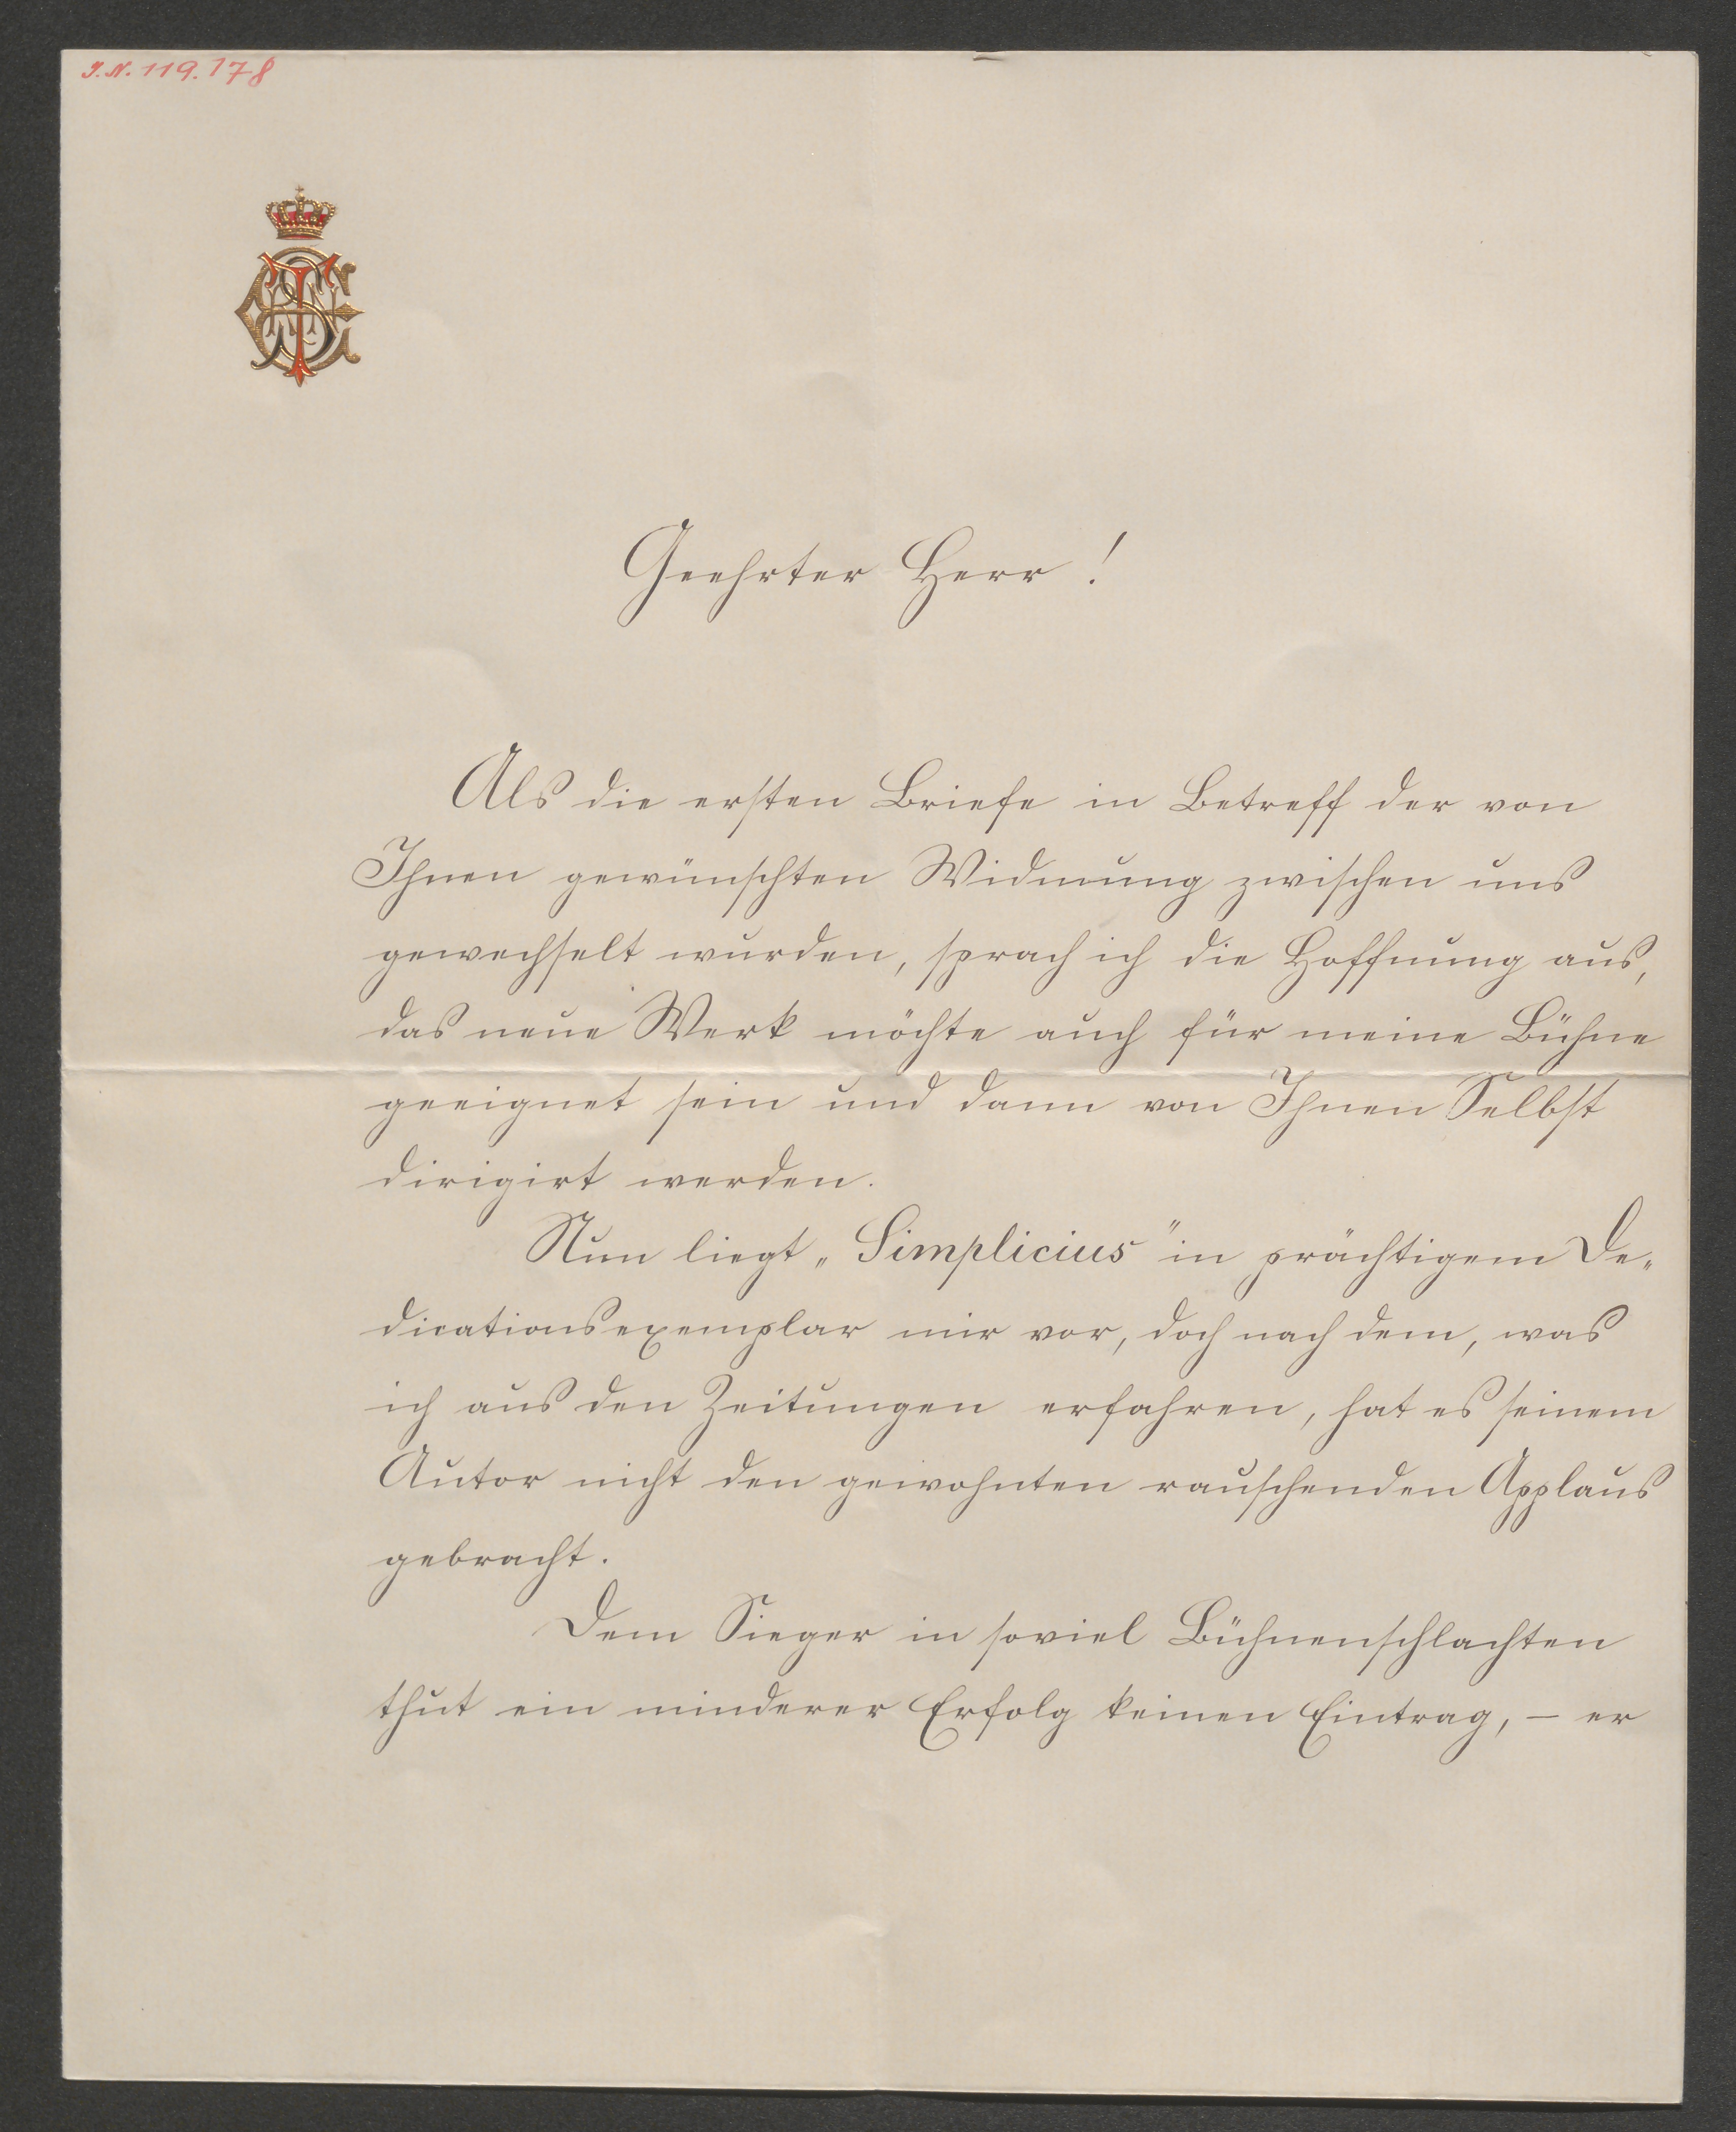 J.N. 119.178
Geehrter Herr!
Als die ersten Briefe in Betreff der von
Ihnen gewünschten Widmung zwischen uns
gewechselt wurden, sprach ich die Hoffnung aus,
das neue Werk möchte auch für meine Bühne
geeignet sein und dann von Ihnen Selbst
dirigirt werden.
Nun liegt „Simplicius" in prächtigem De„
dicationsexemplar mir vor, doch nach dem, was
ich aus den Zeitungen erfahren, hat es seinem
Autor nicht den gewohnten rauschenden Applaus
gebracht.
Dem Sieger in soviel Bühnenschlachten
thut ein minderer Erfolg keinen Eintrag, – er